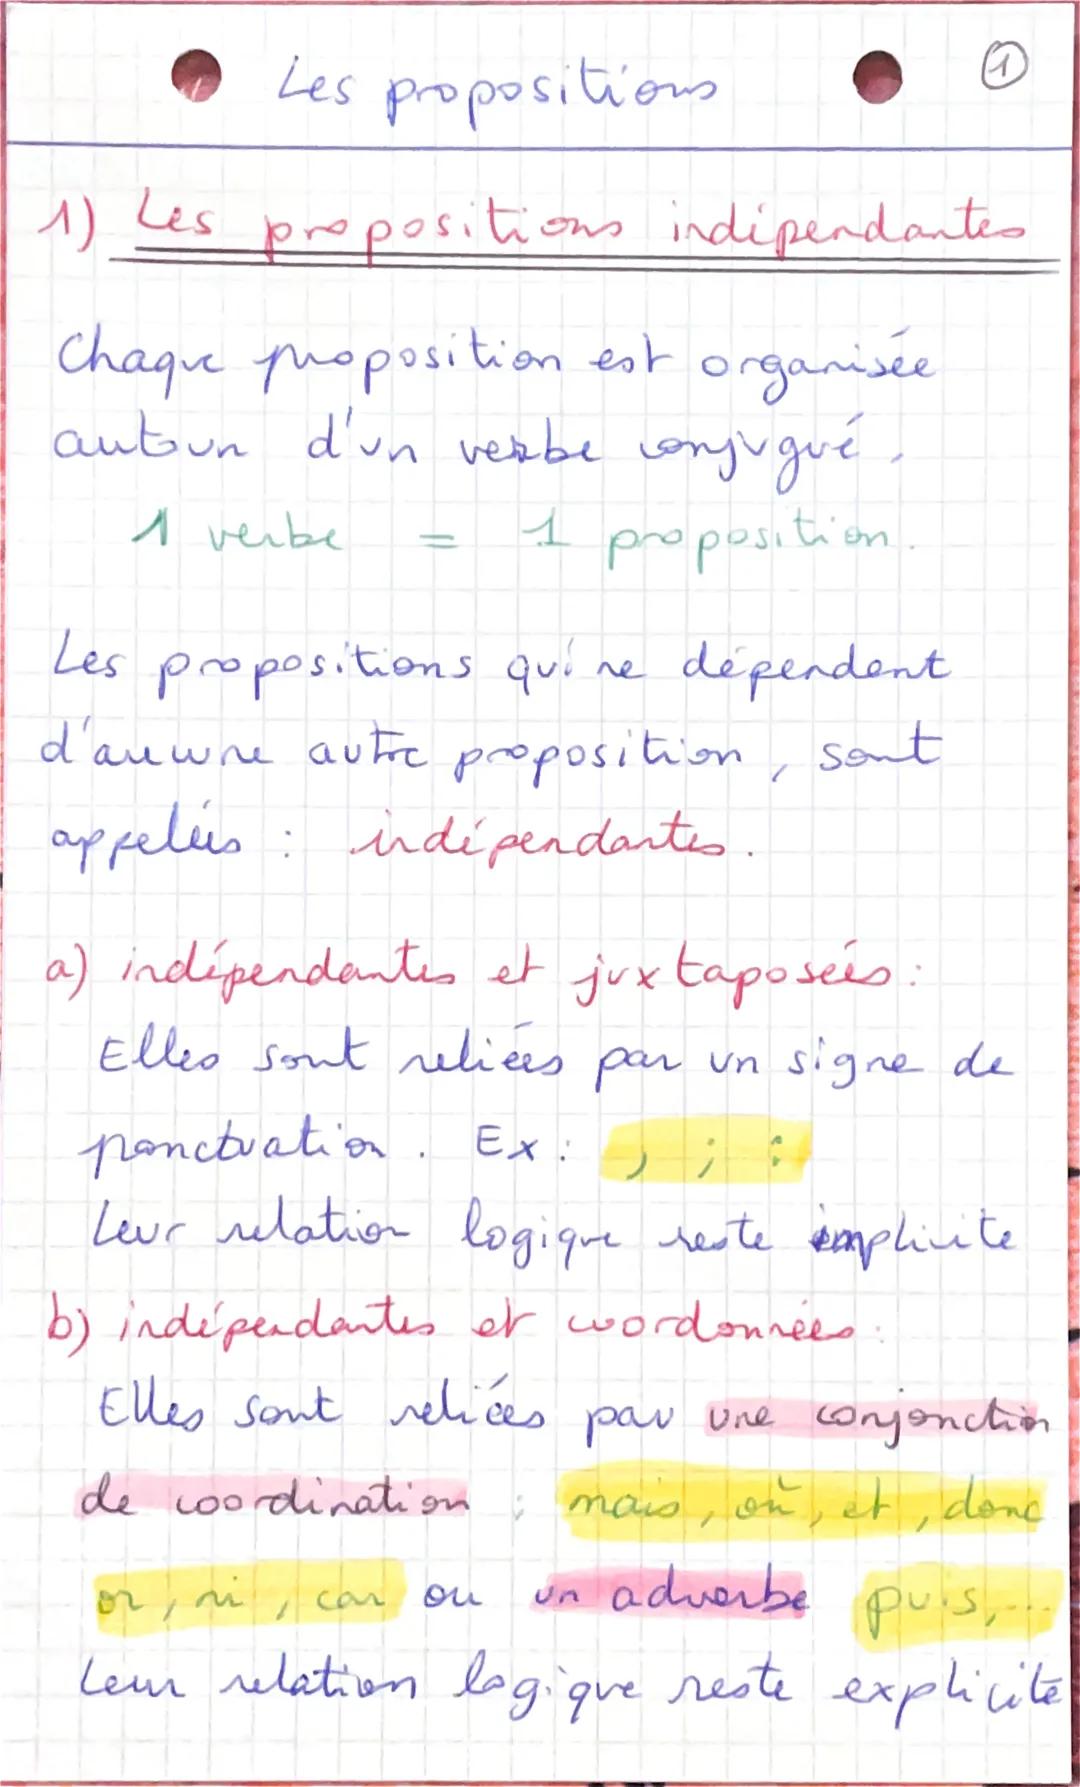 Les propositions
①
1) Les propositions indépendantes
Chaque proposition est organisée
autour d'un verbe conjugué.
1 verbe = 1 proposition.
Les propositions qui ne dépendent
d'aucune autre proposition, sont
appelées : indépendantes.
a) indépendantes et juxtaposées :
Elles sont reliées par un signe de
ponctuation. Ex : , ; :
Leur relation logique reste implicite
b) indépendantes et coordonnées :
Elles sont reliées par une conjonction
de coordination : mais, où, et, donc
or, ni, car ou un adverbe puis,...
Leur relation logique reste explicite